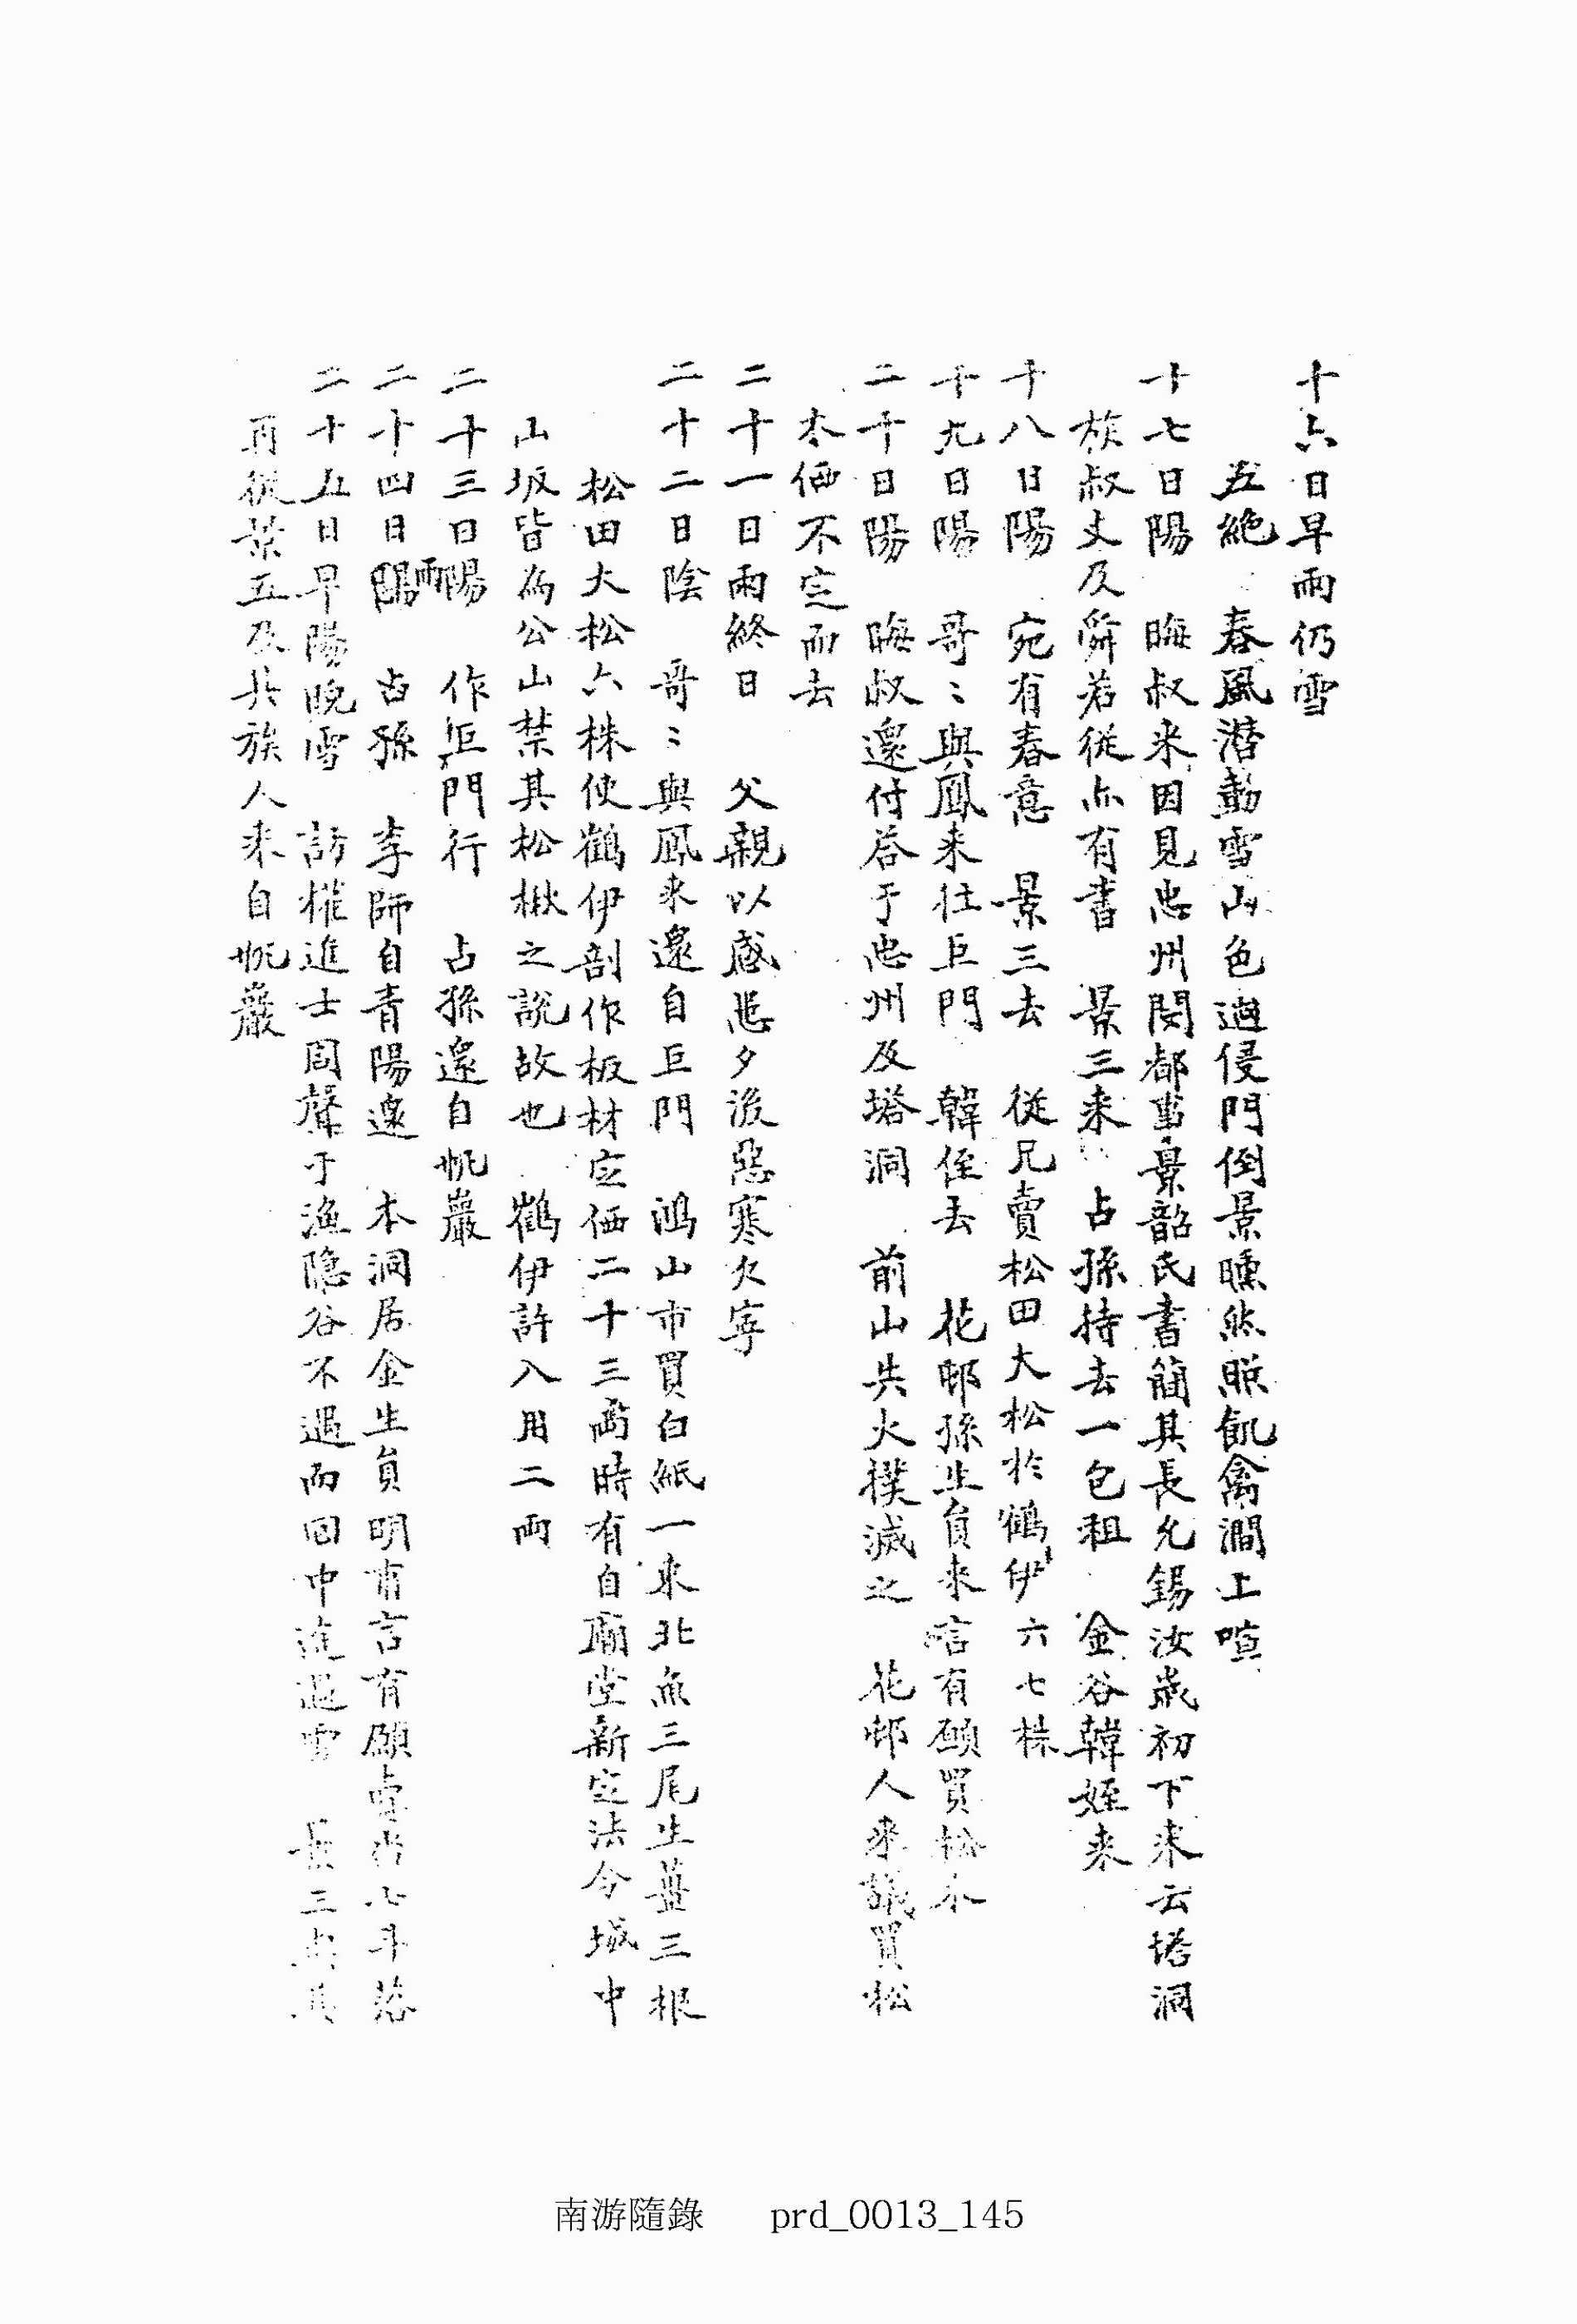 十六日早雨仍雪
五絶 春風潛動雪山色迴侵門倒景曛然照飢禽澗上喧
十七日陽 晦叔来因見忠州閔都事景韶氏書簡其長允錫汝歲初下来云塔洞
族叔丈及舜若從亦有書 景三来 占孫持去一包租 金谷韓姪来
十八日陽 宛有春意 景三去 從兄賣松田大松於鶴伊六七株
十九日陽 哥〻與鳳来往巨門 韓侄去 花邨孫生員来言有願買松木
二十日陽 晦叔還付答于忠州及塔洞 前山失火撲滅之 花邨人来議買松
木価不定而去
二十一日雨終日 父親以感患夕後惡寒欠寧
二十二日陰 哥〻與鳳来還自巨門 鴻山市買白紙一束北魚三尾生薑三根
松田大松六株使鶴伊剖作板材定価二十三両時有自廟堂新定法令城中
山坂皆為公山禁其松楸之說故也 鶴伊許入用二両
二十三日陽雨 作巨門行 占孫還自帆巖
二十四日陽 占孫 李師自青陽還 本洞居金生員明甫言有願賣畓七斗落
二十五日早陽晚雪 訪權進士周聲于漁隱谷不遇而回中途遇雪 景三與其
再從景五及其族人来自帆巖
南游隨錄 prd_0013_145